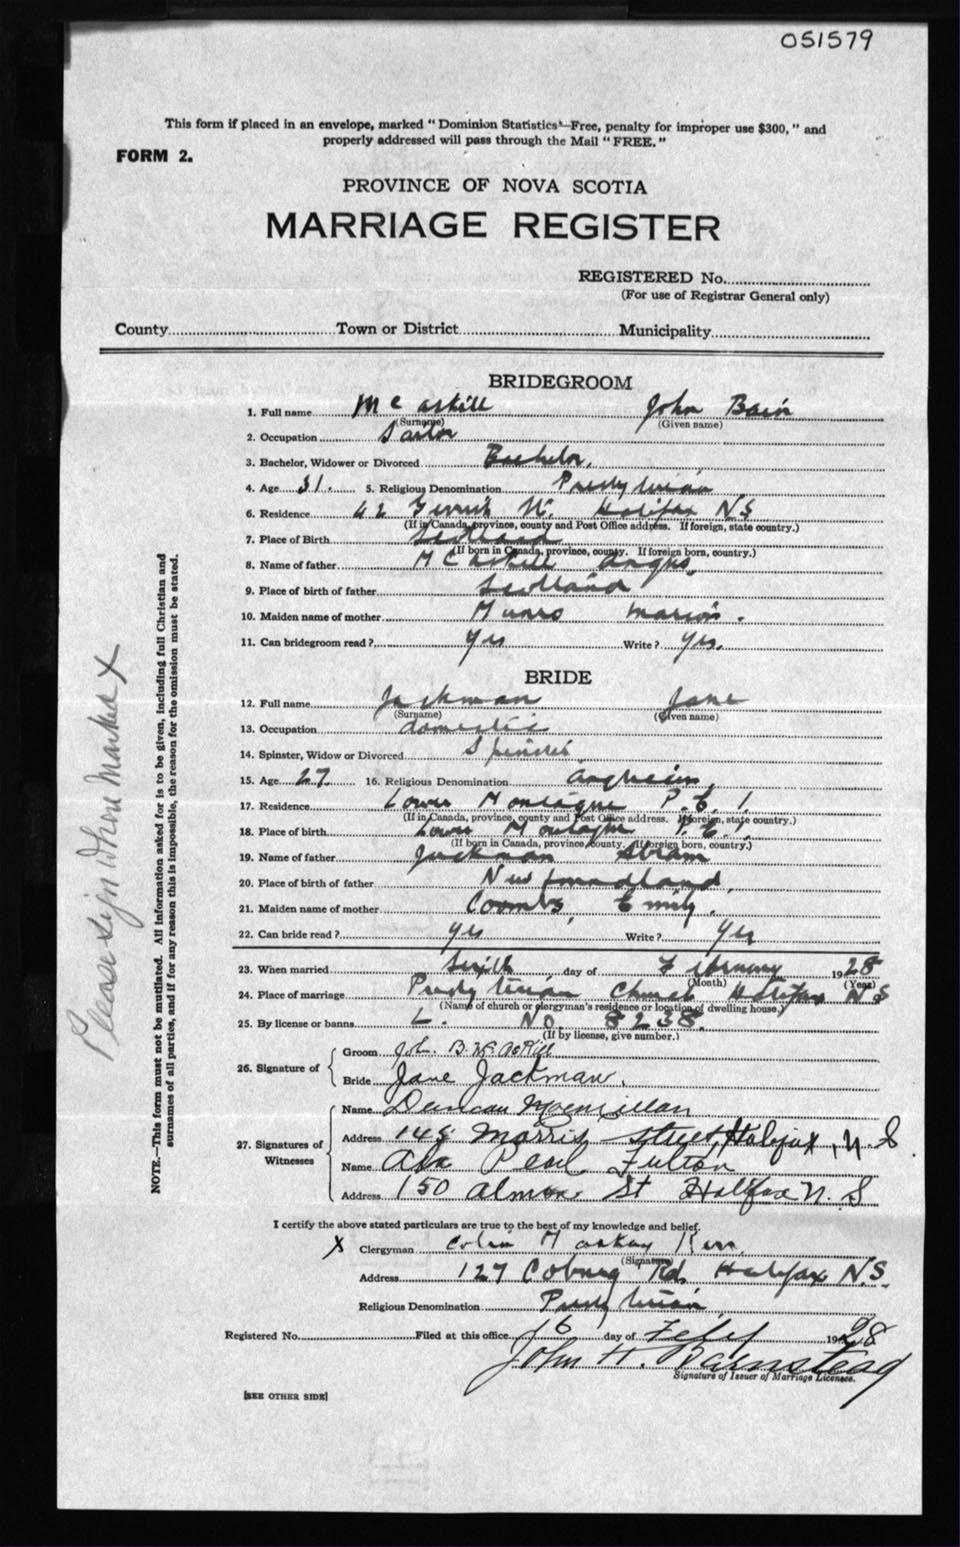 051579
This form if placed in an envelope, marked "Dominion Statistics—Free, penalty for improper use $300," and
properly addressed will pass through the Mail "FREE."
FORM 2.
PROVINCE OF NOVA SCOTIA
MARRIAGE REGISTER
REGISTERED No.
(For use of Registrar General only)
County Town or District Municipality
BRIDEGROOM
1. Full name McAskill John Bain
(Surname) (Given name)
2. Occupation
3. Bachelor, Widower or Divorced Bachelor.
4. Age 31. 5. Religious Denomination Presbyterian
6. Residence 42 St. Halifax NS
(If in Canada, province, county and Post Office address. If foreign, state country.)
7. Place of Birth Scotland
(If born in Canada, province, county. If foreign born, country.)
8. Name of father McAskill Angus
9. Place of birth of father Scotland
10. Maiden name of mother Munro Marion.
11. Can bridegroom read? Yes Write? Yes.
BRIDE
12. Full name Jackman Jane
(Surname) (Given name)
13. Occupation domestic
14. Spinster, Widow or Divorced Spinster
15. Age 27 16. Religious Denomination Anglican,
17. Residence Lower Montague P.E.I.
(If in Canada, province, county and Post Office address. If foreign, state country.)
18. Place of birth Lower Montague P.E.I.
(If born in Canada, province, county. If foreign born, country.)
19. Name of father Jackman Abram
20. Place of birth of father Newfoundland,
21. Maiden name of mother Coombs, Emily.
22. Can bride read? Yes Write? Yes
23. When married Sixth day of February 1928
(Month) (Year)
24. Place of marriage Presbyterian Church Halifax NS
(Name of church or clergyman's residence or location of dwelling house)
25. By license or banns L. No. 8238.
(If by license, give number.)
26. Signature of Groom Jn. B. McAskill
Bride Jane Jackman.
27. Signatures of Witnesses Name Duncan Macmillan
Address 148 Morris Street, Halifax, N S
Name Ada Pearl Fulton
Address 150 Almon St Halifax N.S
I certify the above stated particulars are true to the best of my knowledge and belief.
X Clergyman Colin Mackay Kerr
(Signature)
Address 127 Coburg Rd. Halifax N.S.
Religious Denomination Presbyterian
Registered No. Filed at this office 16 day of Feby 1928
John H. Barnstead
Signature of Issuer of Marriage Licenses.
[SEE OTHER SIDE]
NOTE.—This form must not be mutilated. All information asked for is to be given, including full Christian and
surnames of all parties, and if for any reason this is impossible, the reason for the omission must be stated.
Please sign where marked X